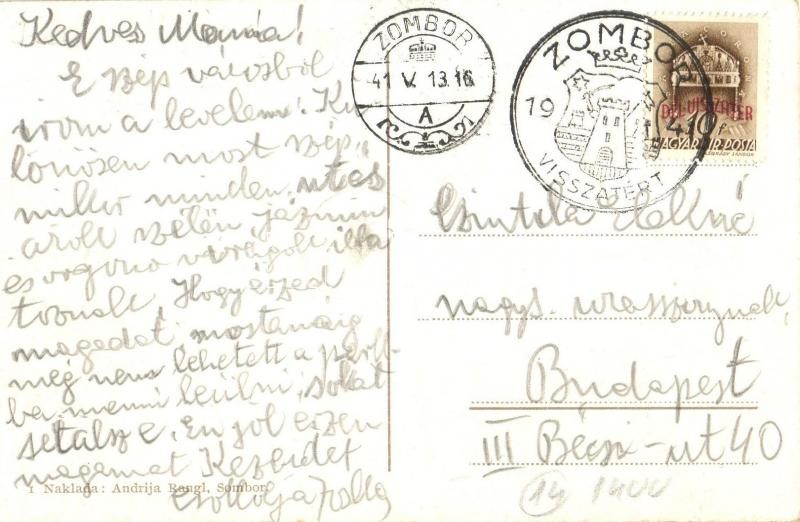 Kedves Mama!
E szép városból
irom a levelem! Kü
lönösen most szép,
mikor minden utca
árok szélén jázmin
és orgona virágok illa
toznak. Hogy érzed
magadat mostanáig
még nem lehetett a park-
ba menni leülni, sokat
sétálsz e. Én jól érzem
magamat Kezeidet
csókolja
1 Naklada: Andrija Raugl, Sombor.
ZOMBOR
41 V. 13.16
A
ZOMBOR
19 41
VISSZATÉRT
DÉL-VISSZATÉR
10f
MAGYAR KIR. POSTA
Csintala
nagys. urasszonynak,
Budapest
III Bécsi-ut 40
14 1400